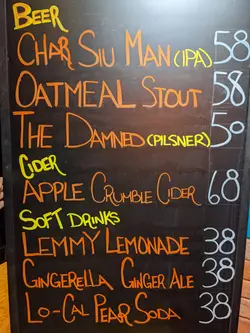 BEER
CHAR SIU MAN (IPA) 58
OATMEAL STOUT 58
THE DAMNED (PILSNER) 59
CIDER
APPLE CRUMBLE CIDER 68
SOFT DRINKS
LEMMY LEMONADE 38
GINGERELLA GINGER ALE 38
LO-CAL PEAR SODA 38